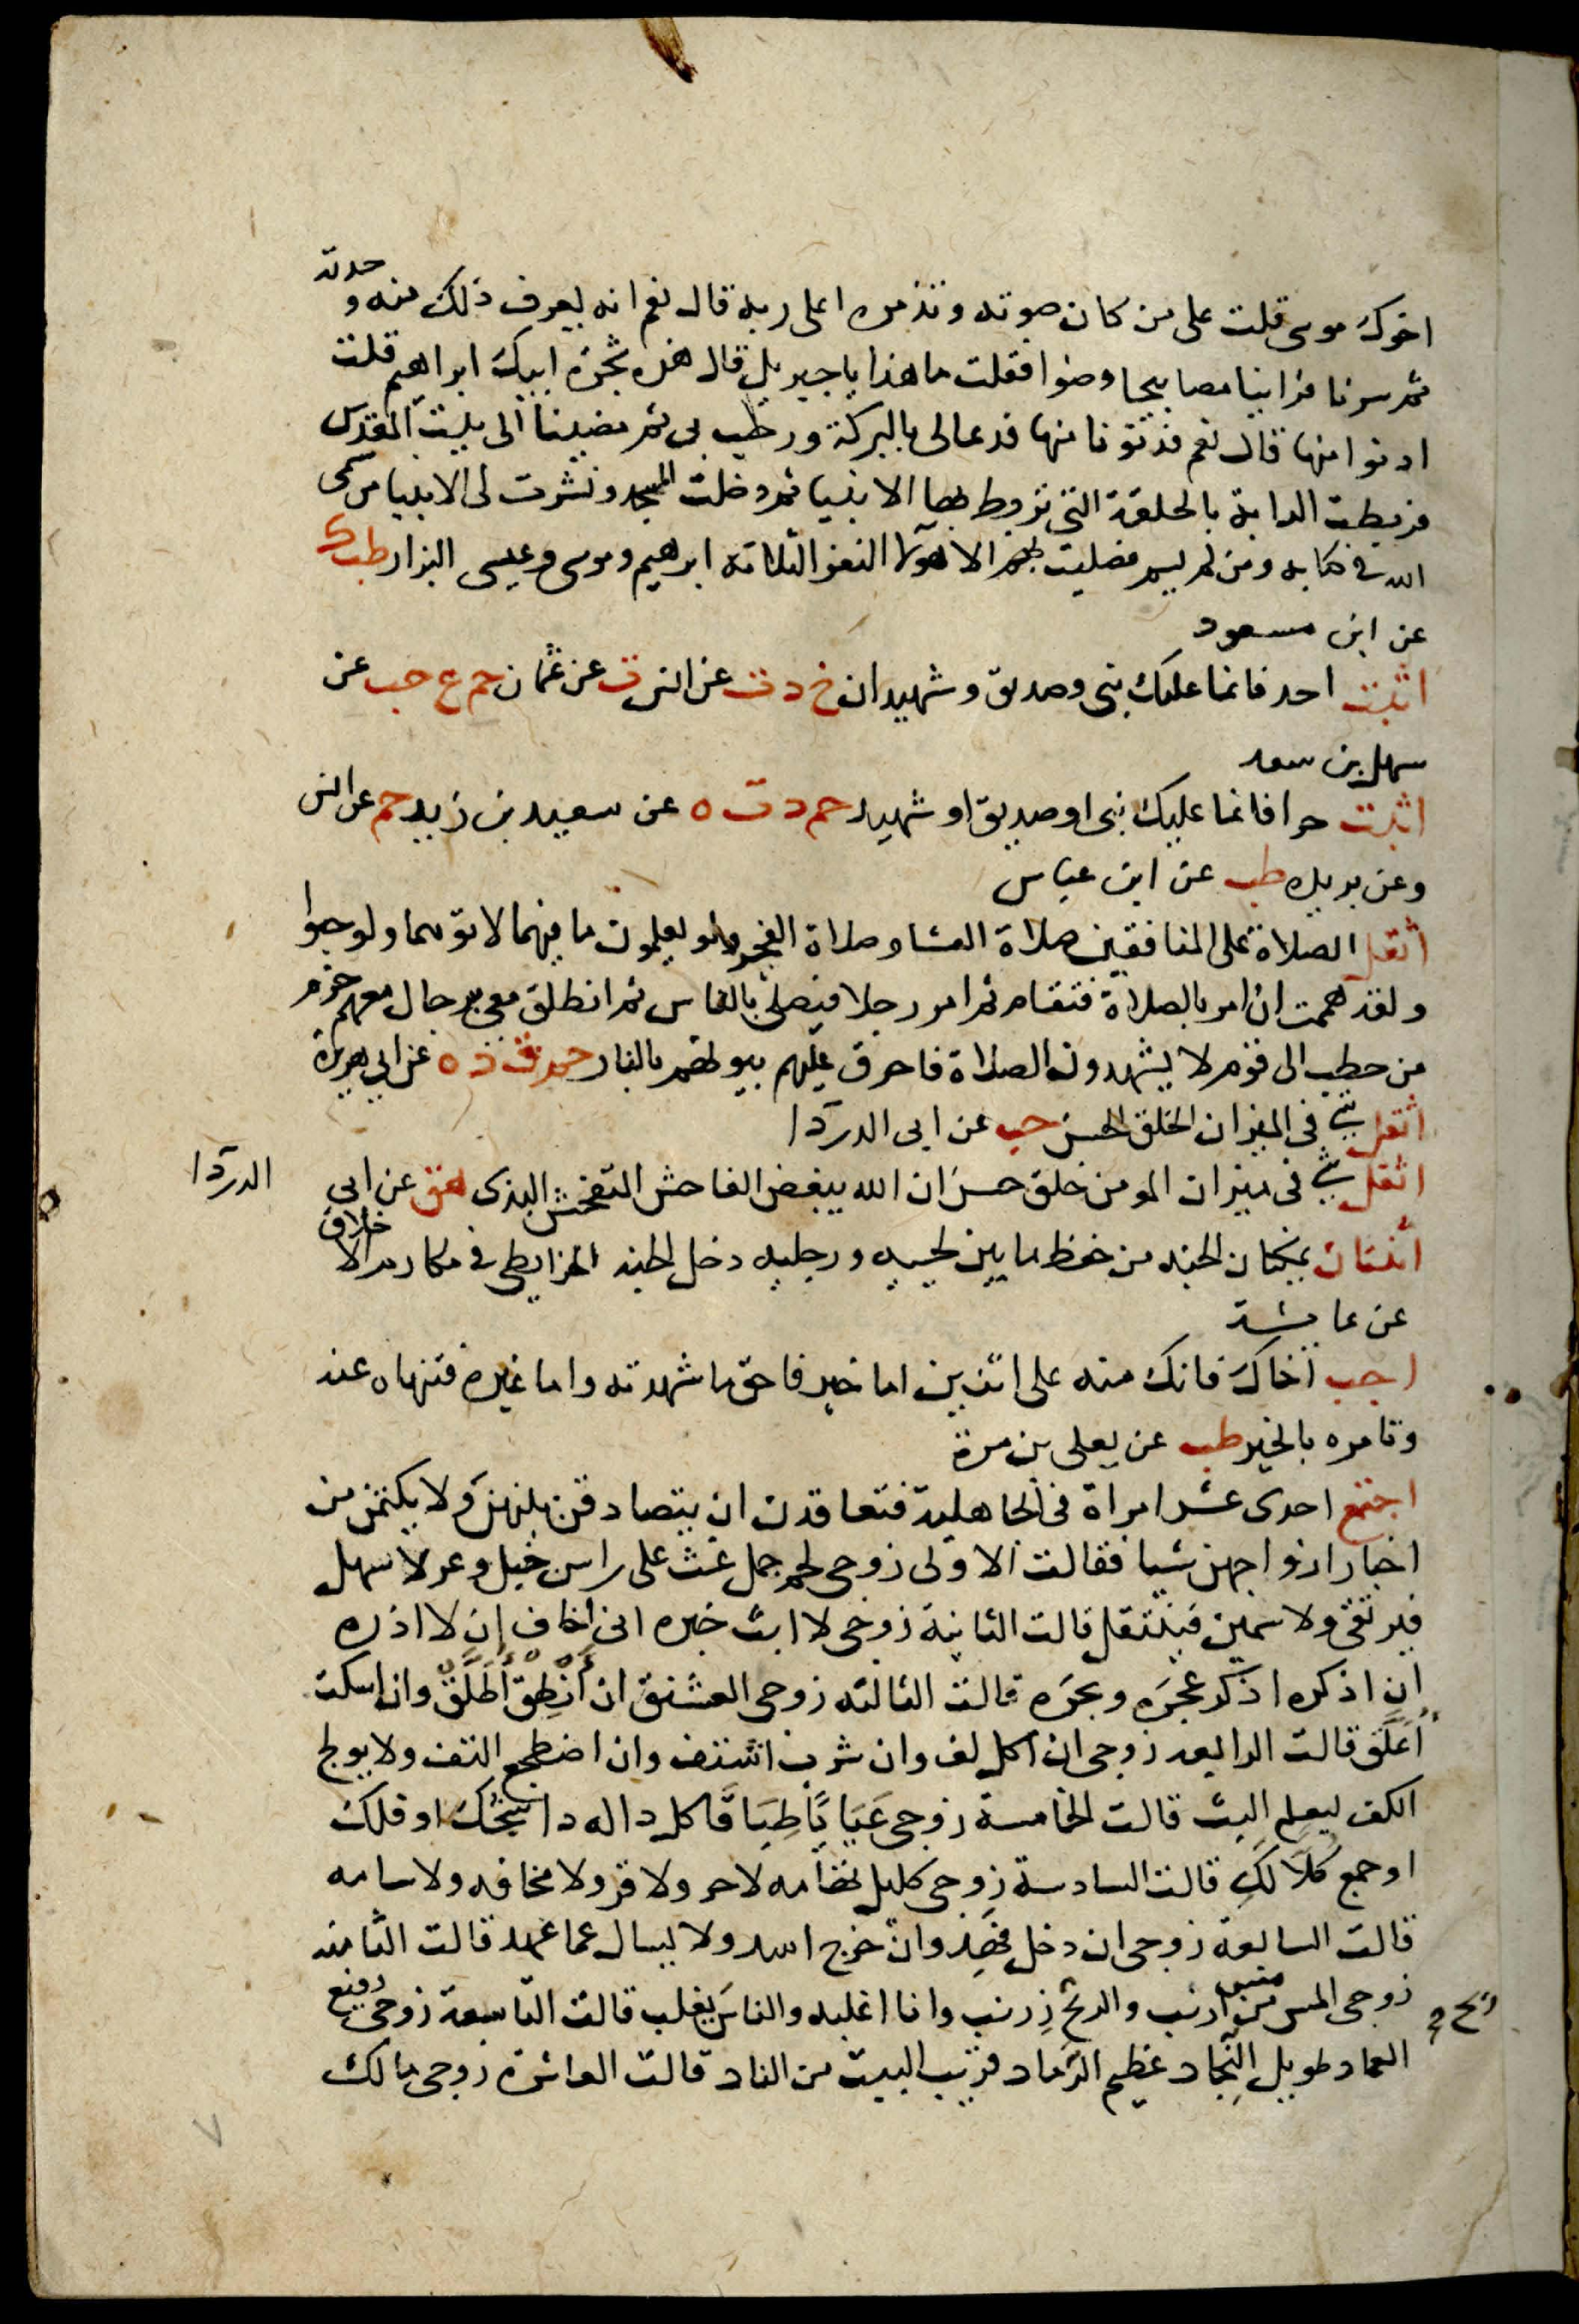 اخوك موسى قلت على من كان صوته وتذمره اعلى ربه قال نعم انه يعرف ذلك منه و حدته
ثم سرنا فراينا مصابيحا وضوا فقلت ما هذا يا جبريل قال هذه شجرة ابيك ابراهيم قلت
ادنوا منها قال نعم فدنونا منها فدعا لى بالبركة ورحب بى ثم مضينا الى بيت المقدس
فربطت الدابة بالحلقة التى تربط بها الانبيا ثم دخلت المسجد ونشرت لى الانبيا من سمى
الله فى كتابه ومن لم يسم فصليت بهم الا هولا النفر الثلاثه ابرهيم وموسى وعيسى البزار طب ك
عن ابن مسعود
اثبت احد فانما عليك نبى وصديق وشهيدان خ د ت عن انس ت عن عثمان حم ع حب عن
سهل بن سعد
اثبت حرا فانما عليك نبى او صديق او شهيد حم د ت ه عن سعيد بن زيد حم عن انس
وعن بريده طب عن ابن عباس
اثقل الصلاة على المنافقين صلاة العشا وصلاة الفجر ولو يعلمون ما فيهما لاتوهما ولو حبوا
ولقد هممت ان امر بالصلاة فتقام ثم امر رجلا فيصلى بالناس ثم انطلق معى برجال معهم حزم
من حطب الى قوم لا يشهدون الصلاة فاحرق عليهم بيوتهم بالنار حم ق د ه عن ابى هريرة
اثقل شى فى الميزان الخلق الحسن حب عن ابى الدردا
اثقل شى فى ميزان المومن خلق حسن ان الله يبغض الفاحش المتفحش البذى هق عن ابى
الدردا
اثنتان يدخلان الجنه من حفظ ما بين لحييه ورجليه دخل الجنه الخرايطى فى مكارم الاخلاق
عن عايشة
اجب اخاك فانك منه على اثنين اما خير فاحق ما شهدته واما غيره فتنهاه عنه
وتامره بالخير طب عن يعلى بن مرة
اجتمع احدى عشر امراة فى الجاهلية فتعاقدن ان يتصادقن بينهن ولا يكتمن من
اخبار ازواجهن شيا فقالت الاولى زوجى لحم جمل غث على راس جبل وعر لا سهل
فيرتقى ولا سمين فينتقل قالت الثانية زوجى لا ابث خبره انى اخاف ان لا اذره
ان اذكره اذكر عجره وبجره قالت الثالثه زوجى العشنق ان أَنْطِقْ أُطَلَّقْ وان اسكت
أُعَلَّقْ قالت الرابعه زوجى ان اكل لف وان شرب اشتف وان اضطجع التف ولا يولج
الكف ليعلم البث قالت الخامسة زوجى عَيَايَا طِبَاقَا كل دا له دا شجك او فلك
او جمع كُلًا لَكِ قالت السادسة زوجى كليل تهامه لا حر ولا قر ولا مخافه ولا سامه
قالت السابعة زوجى ان دخل فَهِدَ وان خرج اسد ولا يسال عما عهد قالت الثامنه
زوجى المس مس ارنب والريح ريح زرنب وانا اغلبه والناس يغلب قالت التاسعة زوجى رفيع
العماد طويل النِّجاد عظيم الرماد قريب البيت من الناد قالت العاشرة زوجى مالك
٧